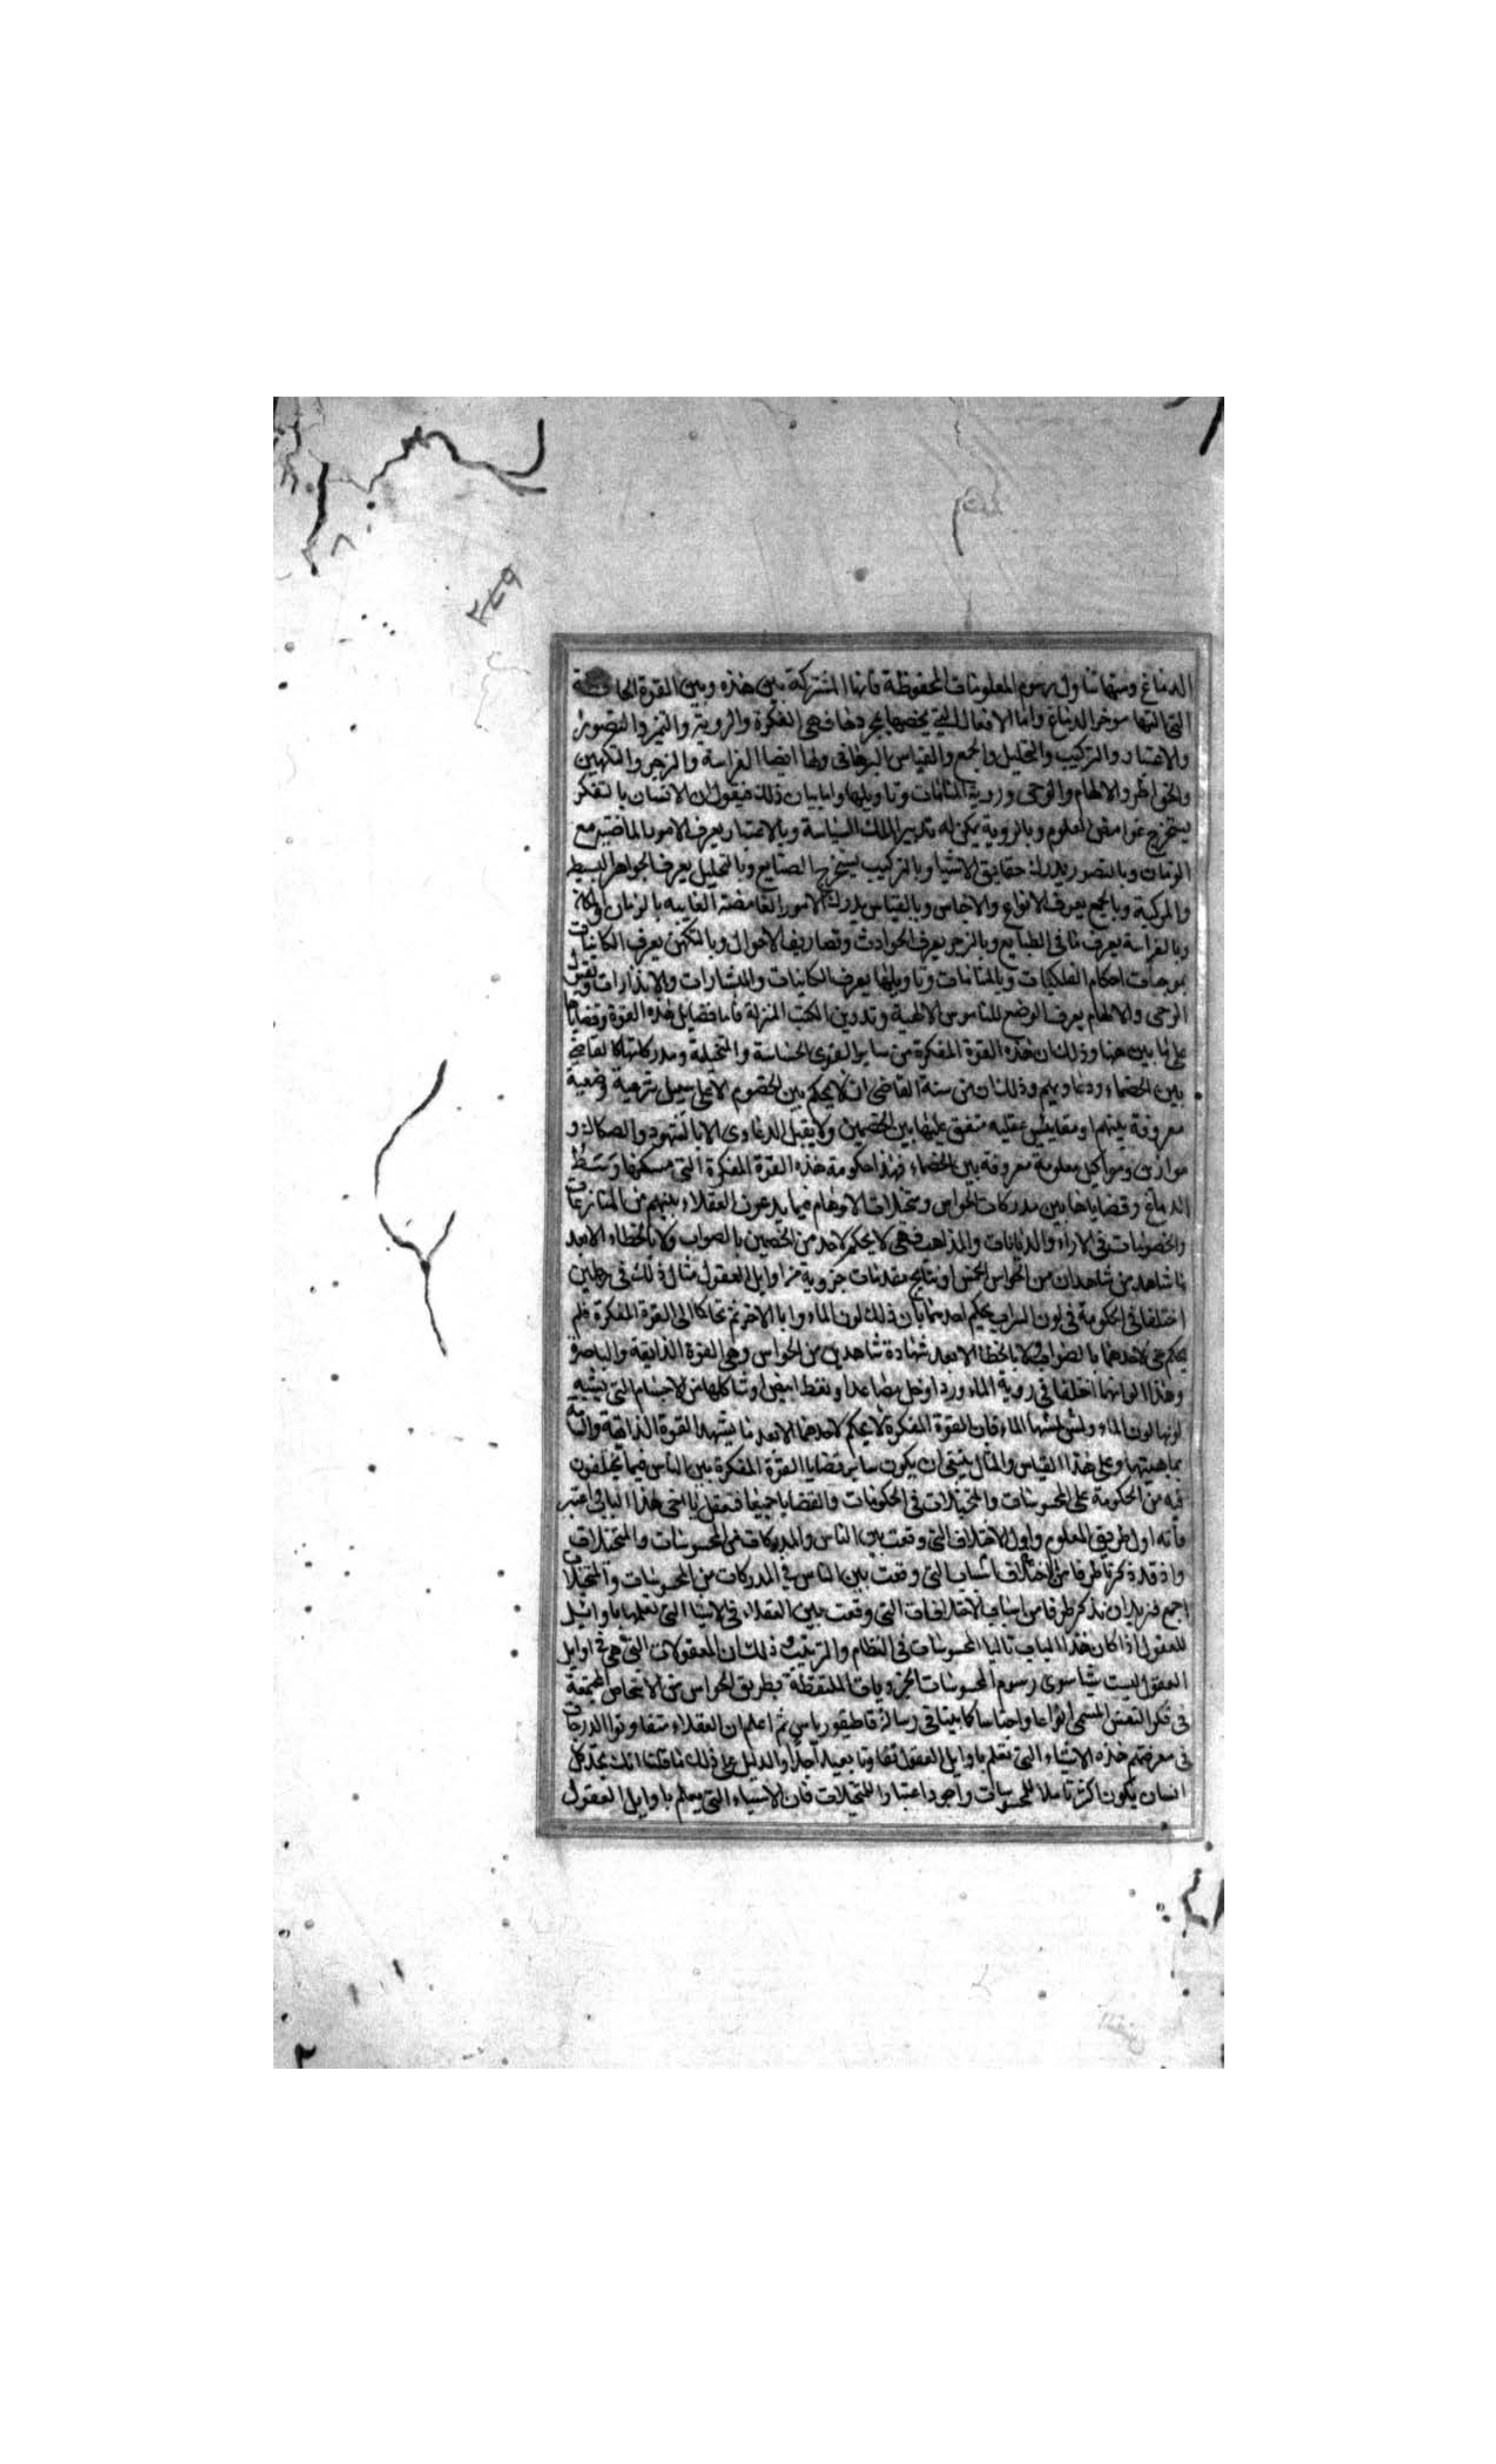 ٣٤٩
الدماغ ومنها تناول رسوم المعلومات المحفوظة فانها المشتركة بين هذه وبين القوة الحافظة
التي التها موخر الدماغ واما الافعال التي يخصها بمجردها فهي الفكرة والروية والتميز والتصور
والاعتبار والتركيب والتحليل والجمع والقياس البرهاني ولها ايضا الفراسة والزجر والتكهين
والخواطر والالهام والوحى وروية المنامات وتاويلها واما بيان ذلك فيقول ان الانسان بالتفكر
يستخرج غوامض العلوم وبالروية يمكن له تدبير الملك والسياسة وبالاعتبار يعرف الامور الماضية مع
الزمان وبالتصور يدرك حقايق الاشيا وبالتركيب يستخرج الصنايع وبالتحليل يعرف الجواهر البسيط
والمركبة وبالجمع يعرف الانواع والاجناس وبالقياس يدرك الامور الغامضة الغايبه بالزمان والمكان
وبالفراسة يعرف ما في الطبايع وبالزجر يعرف الحوادث وتصاريف الاحوال وبالتكهن يعرف الكاينات
بموجبات احكام الفلكيات وبالمنامات وتاويلها يعرف الكاينات والبشارات والانذارات وبقبول
الوحى والالهام يعرف الوضع للناموس الالهية وتدوين الكتب المنزلة فاما فضايل هذه القوة وقضاياها
على ما بين هنا وذلك ان هذه القوة المفكرة من ساير القوى الحساسة والمتخيلة ومدركاتها كالقاضي
بين الخصماء ودعاويهم وذلك ان من سنة القاضى ان لا يحكم بين الخصوم الا على سبيل شرعية وضعية
معروفة بينهم او مقاييس عقليه متفق عليها بين الخصمين ولا يقبل الدعاوى الا بالشهود والصكاك و
موازين ومواكيل معلومة معروفه بين الخصماء فهذا حكومة هذه القوة المفكرة التى مسكنها وسط
الدماغ وقضاياها بين مدركات الحواس ومتخيلات الاوهام فيما يدعون العقلاء بينهم من المنازعات
والخصومات فى الاراء والديانات والمذاهب فهى لا يحكم لاحد من الخصمين بالصواب ولا بالخطاء الا بعد
ما شاهد من شاهدان من الحواس الخمس او نتايج مقدمات جزوية من اوايل العقول مثال ذلك في رجلين
اختلفا فى الحكومة في لون السراب يحكم احدهما بان ذلك لون الماء وابا الاخر ثم تحاكما الى القوة المفكرة فلم
يحكم هى لاحدهما بالصواب ولا بالخطا الا بعد شهادة شاهدين من الحواس وهى القوة الذايقة والباصرة
وهذا لو انهما اختلفا في روية الماء ورد او خل مصاعد او نفط ابيض او شاكلها من الاجسام التى يشبه
لونها لون الماء وليس لمسها الماء فان القوة المفكرة لا يحكم لاحدهما الا بعد ما يشهد القوة الذايقة والشامة
بماهيتها وعلى هذا القياس والمثال ينبغى ان يكون ساير قضايا القوة المفكرة بين الناس فيما يختلفون
فيه من الحكومة على المحسوسات والمتخيلات فى الحكومات والقضايا جميعا فتعقل يا اخى هذا الباب واعتبر
فانه اول طريق العلوم واول الاختلاف التى وقعت بين الناس والمدركات من المحسوسات والمتخيلات
واذ قد ذكرنا طرفا من اختلاف اسباب التى وقعت بين الناس في المدركات من المحسوسات والمتخيلات
اجمع فنريد ان نذكر طرفا من اسباب الاختلافات التى وقعت بين العقلاء فى الاشيا التى تعلمها باوايل
للعقول اذا كان هذا الباب تاليا المحسوسات فى النظام والترتيب وذلك ان المعقولات التى هى في اوايل
العقول ليست شيا سوى رسوم المحسوسات الجزويات الملتقطة بطريق الحواس من الاشخاص المجتمعة
فى فكر النفس المسمى انواعا واجناسا كما بينا فى رسالة قاطيقورياس ثم اعلم ان العقلاء متفاوتوا الدرجات
فى معرفتهم هذه الاشياء التى تعلم باوايل العقول تفاوتا بعيدا جدا والدليل على ذلك ما قلنا انك تجد كل
انسان يكون اكثر تاملا للمحسوسات واجود اعتبارا للمتخيلات فان الاشياء التى يعلم باوايل العقول